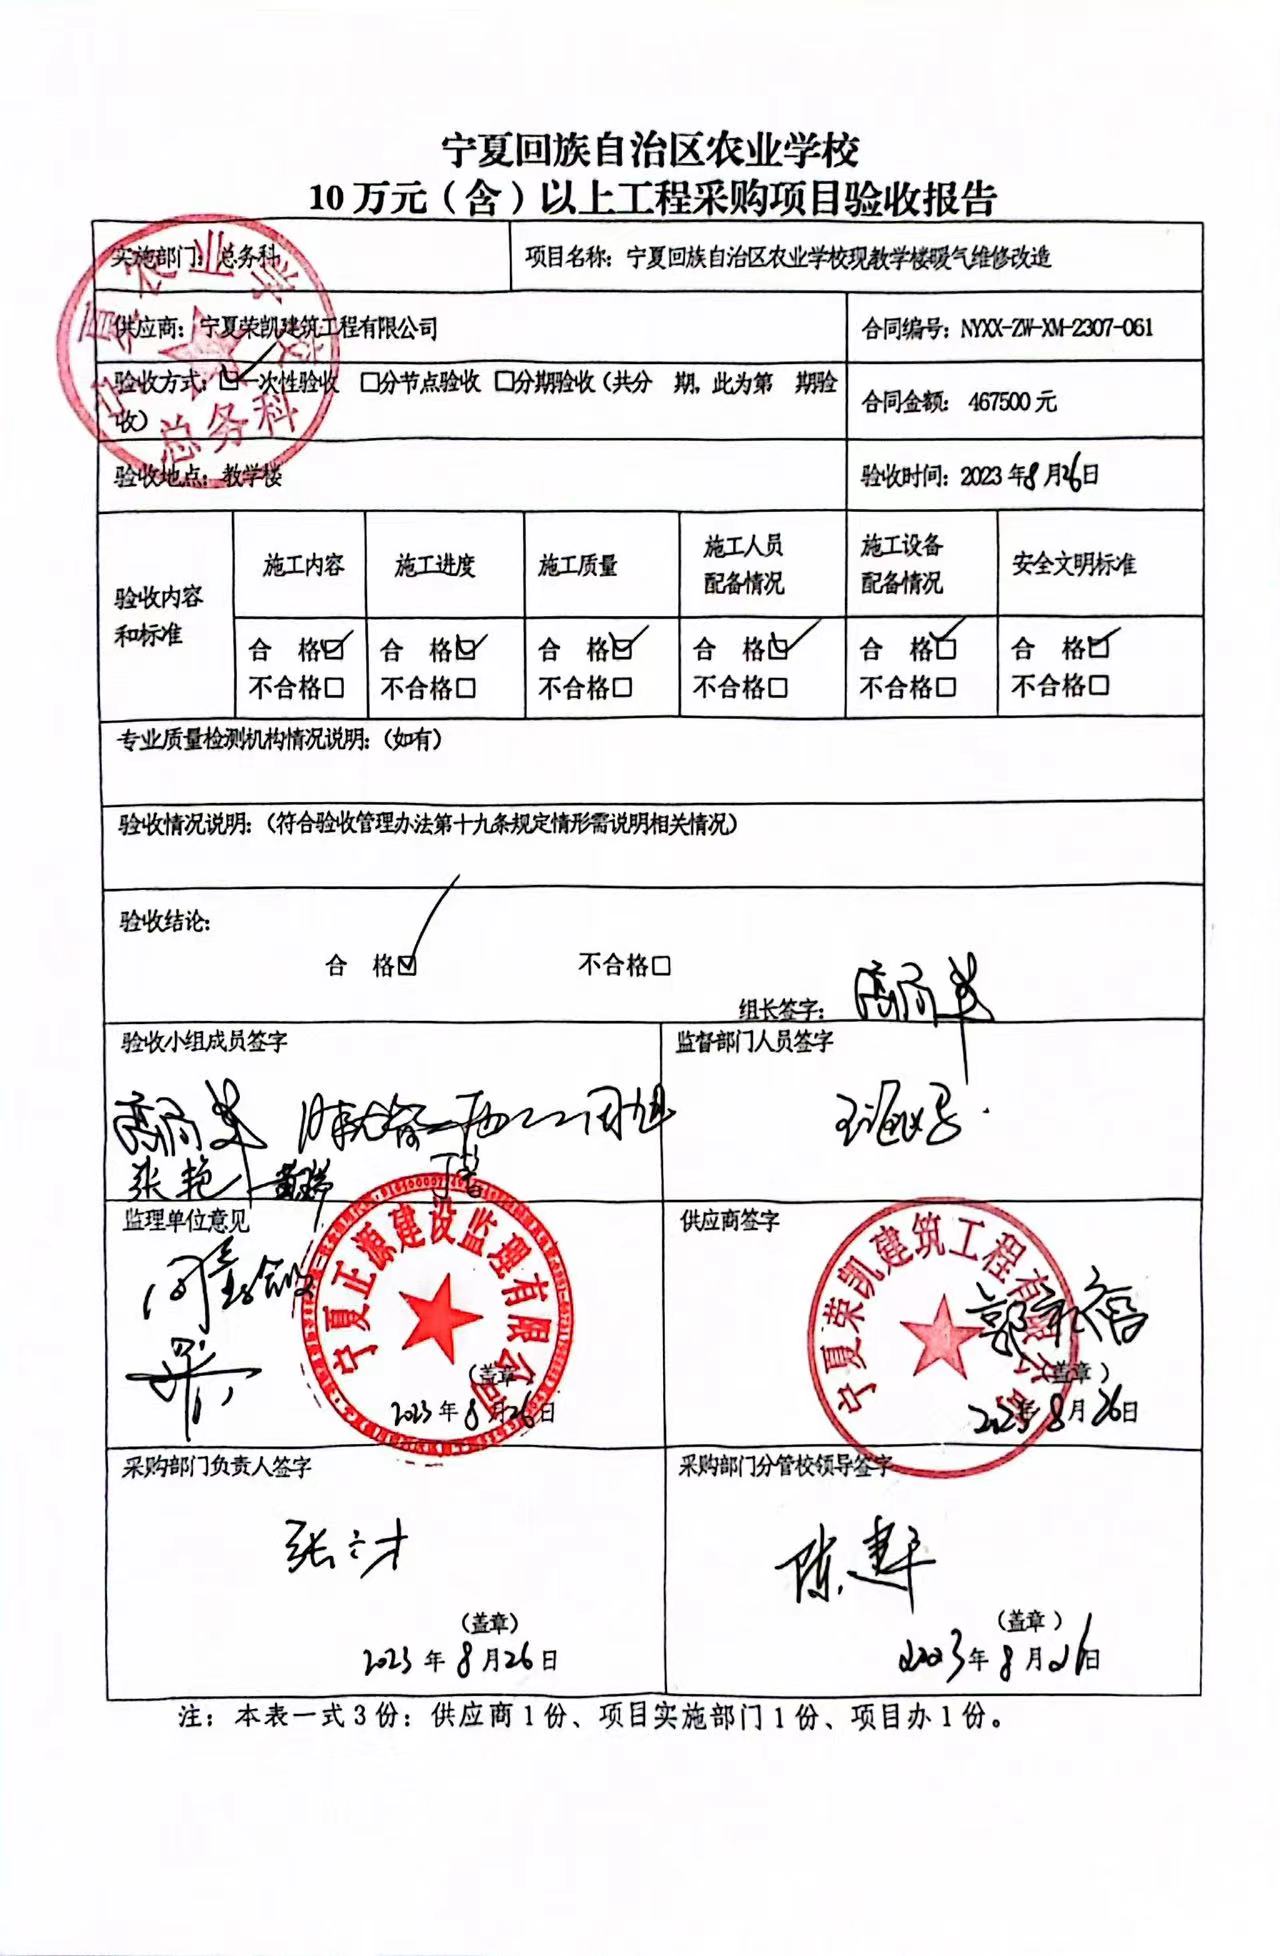 宁夏回族自治区农业学校
10万元（含）以上工程采购项目验收报告
实施部门：总务科
项目名称：宁夏回族自治区农业学校现教学楼暖气维修改造
供应商：宁夏荣凯建筑工程有限公司
合同编号：NYXX-ZW-XM-2307-061
验收方式：☑一次性验收 □分节点验收 □分期验收（共分 期，此为第 期验
收）
合同金额： 467500 元
总务科
验收地点：教学楼
验收时间：2023 年8月26日
验收内容
和标准
施工内容
施工进度
施工质量
施工人员
配备情况
施工设备
配备情况
安全文明标准
合 格☑ 合 格☑ 合 格☑ 合 格☑ 合 格☑ 合 格☑
不合格□ 不合格□ 不合格□ 不合格□ 不合格□ 不合格□
专业质量检测机构情况说明：（如有）
验收情况说明：（符合验收管理办法第十九条规定情形需说明相关情况）
验收结论：
合 格☑ 不合格□
组长签字：
验收小组成员签字
监督部门人员签字
张艳 丁
监理单位意见
同意验收
宁夏正源建设监理有限公司
（盖章）
2023 年 8 月 26 日
供应商签字
宁夏荣凯建筑工程有限公司
（盖章）
2023年 8 月 26 日
采购部门负责人签字
（盖章）
2023 年 8 月 26 日
采购部门分管校领导签字
陈建平
（盖章）
2023年 8 月 26日
注：本表一式3份：供应商1份、项目实施部门1份、项目办1份。